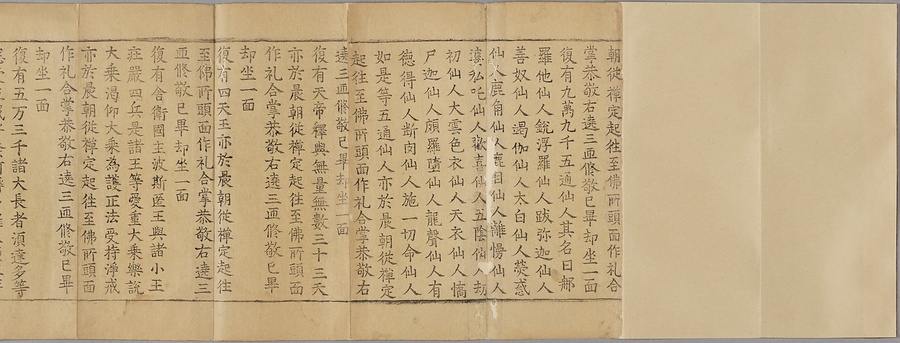 朝従禅定起往至佛所頭面作礼合
掌恭敬右遶三匝修敬已畢却坐一面
復有九萬九千五通仙人其名曰郍
羅他仙人鋭浮羅仙人跋弥迦仙人
善奴仙人遏伽仙人太白仙人熒惑
仙人鹿角仙人鹿目仙人離慢仙人
仙人歡喜仙人五陰仙人劫
初仙人大雲色衣仙人天衣仙人憍
尸迦仙人頗羅墮仙人龍聲仙人有
徳得仙人断肉仙人施一切命仙人
如是等五通仙人亦於晨朝従禅定
起往至佛所頭面作礼合掌恭敬右
遶三匝修敬已畢却坐一面
復有天帝釋與無量無數三十三天
亦於晨朝従禅定起往至佛所頭面
作礼合掌恭敬右遶三匝修敬已畢
却坐一面
復有四天王亦於晨朝従禅定起往
至佛所頭面作礼合掌恭敬右遶三
匝修敬已畢却坐一面
復有舎衛國主波斯匿王與諸小王
莊嚴四兵是諸王等愛重大乗樂説
大乗渇仰大乗為護正法受持淨戒
亦於晨朝従禅定起往至佛所頭面
作礼合掌恭敬右遶三匝修敬已畢
却坐一面
復有五万三千諸大長者湏達多等